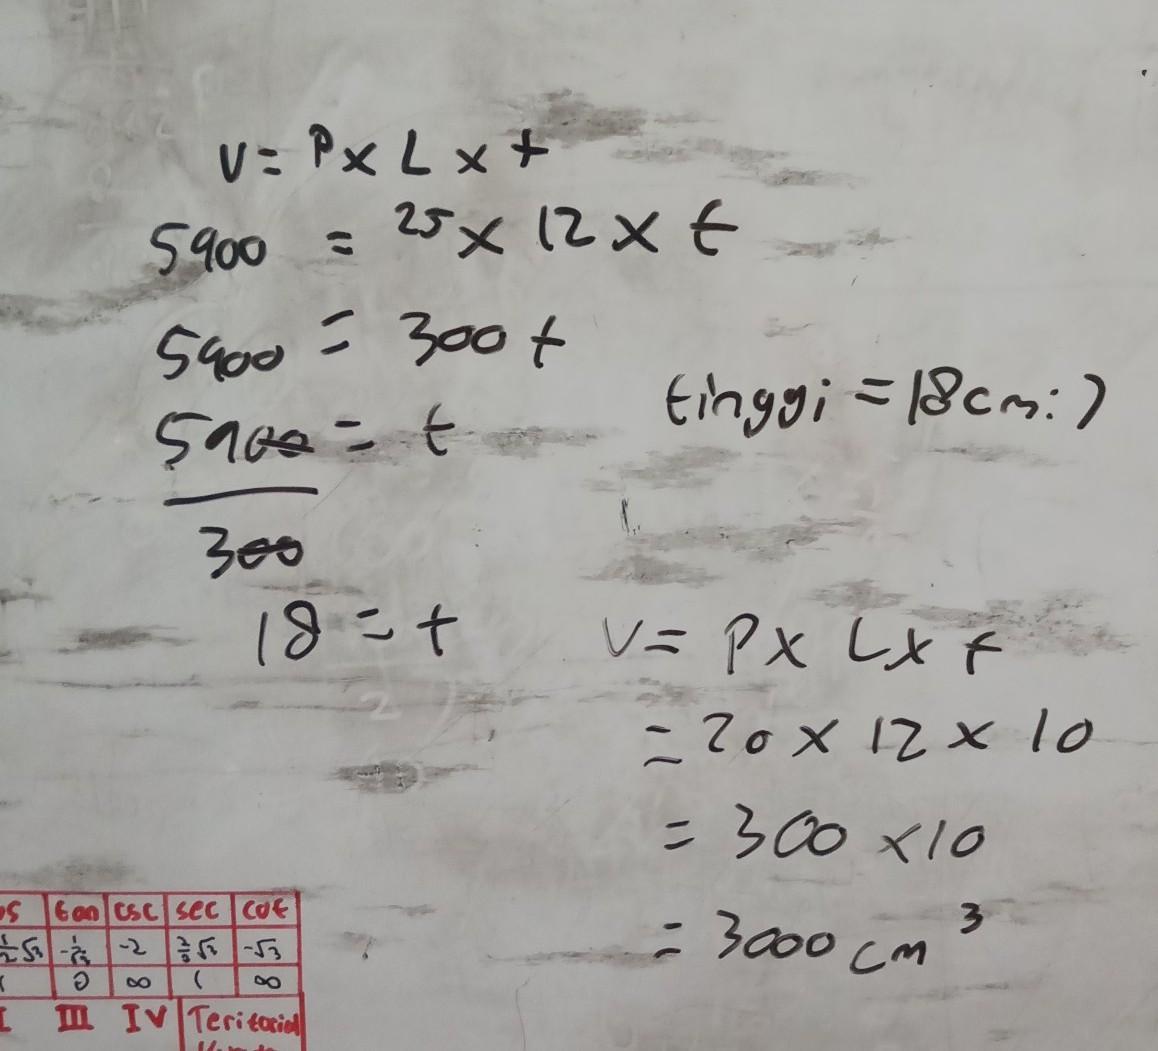 V = P x L x t
5900 = 25 x 12 x t
5900 = 300 t
5900 = t
300
18 = t
tinggi = 18cm :)
V = P x L x t
= 20 x 12 x 10
= 300 x 10
= 3000 cm³
tan csc sec cot
-2 -√3
0 ∞ ∞
III IV Teritorial